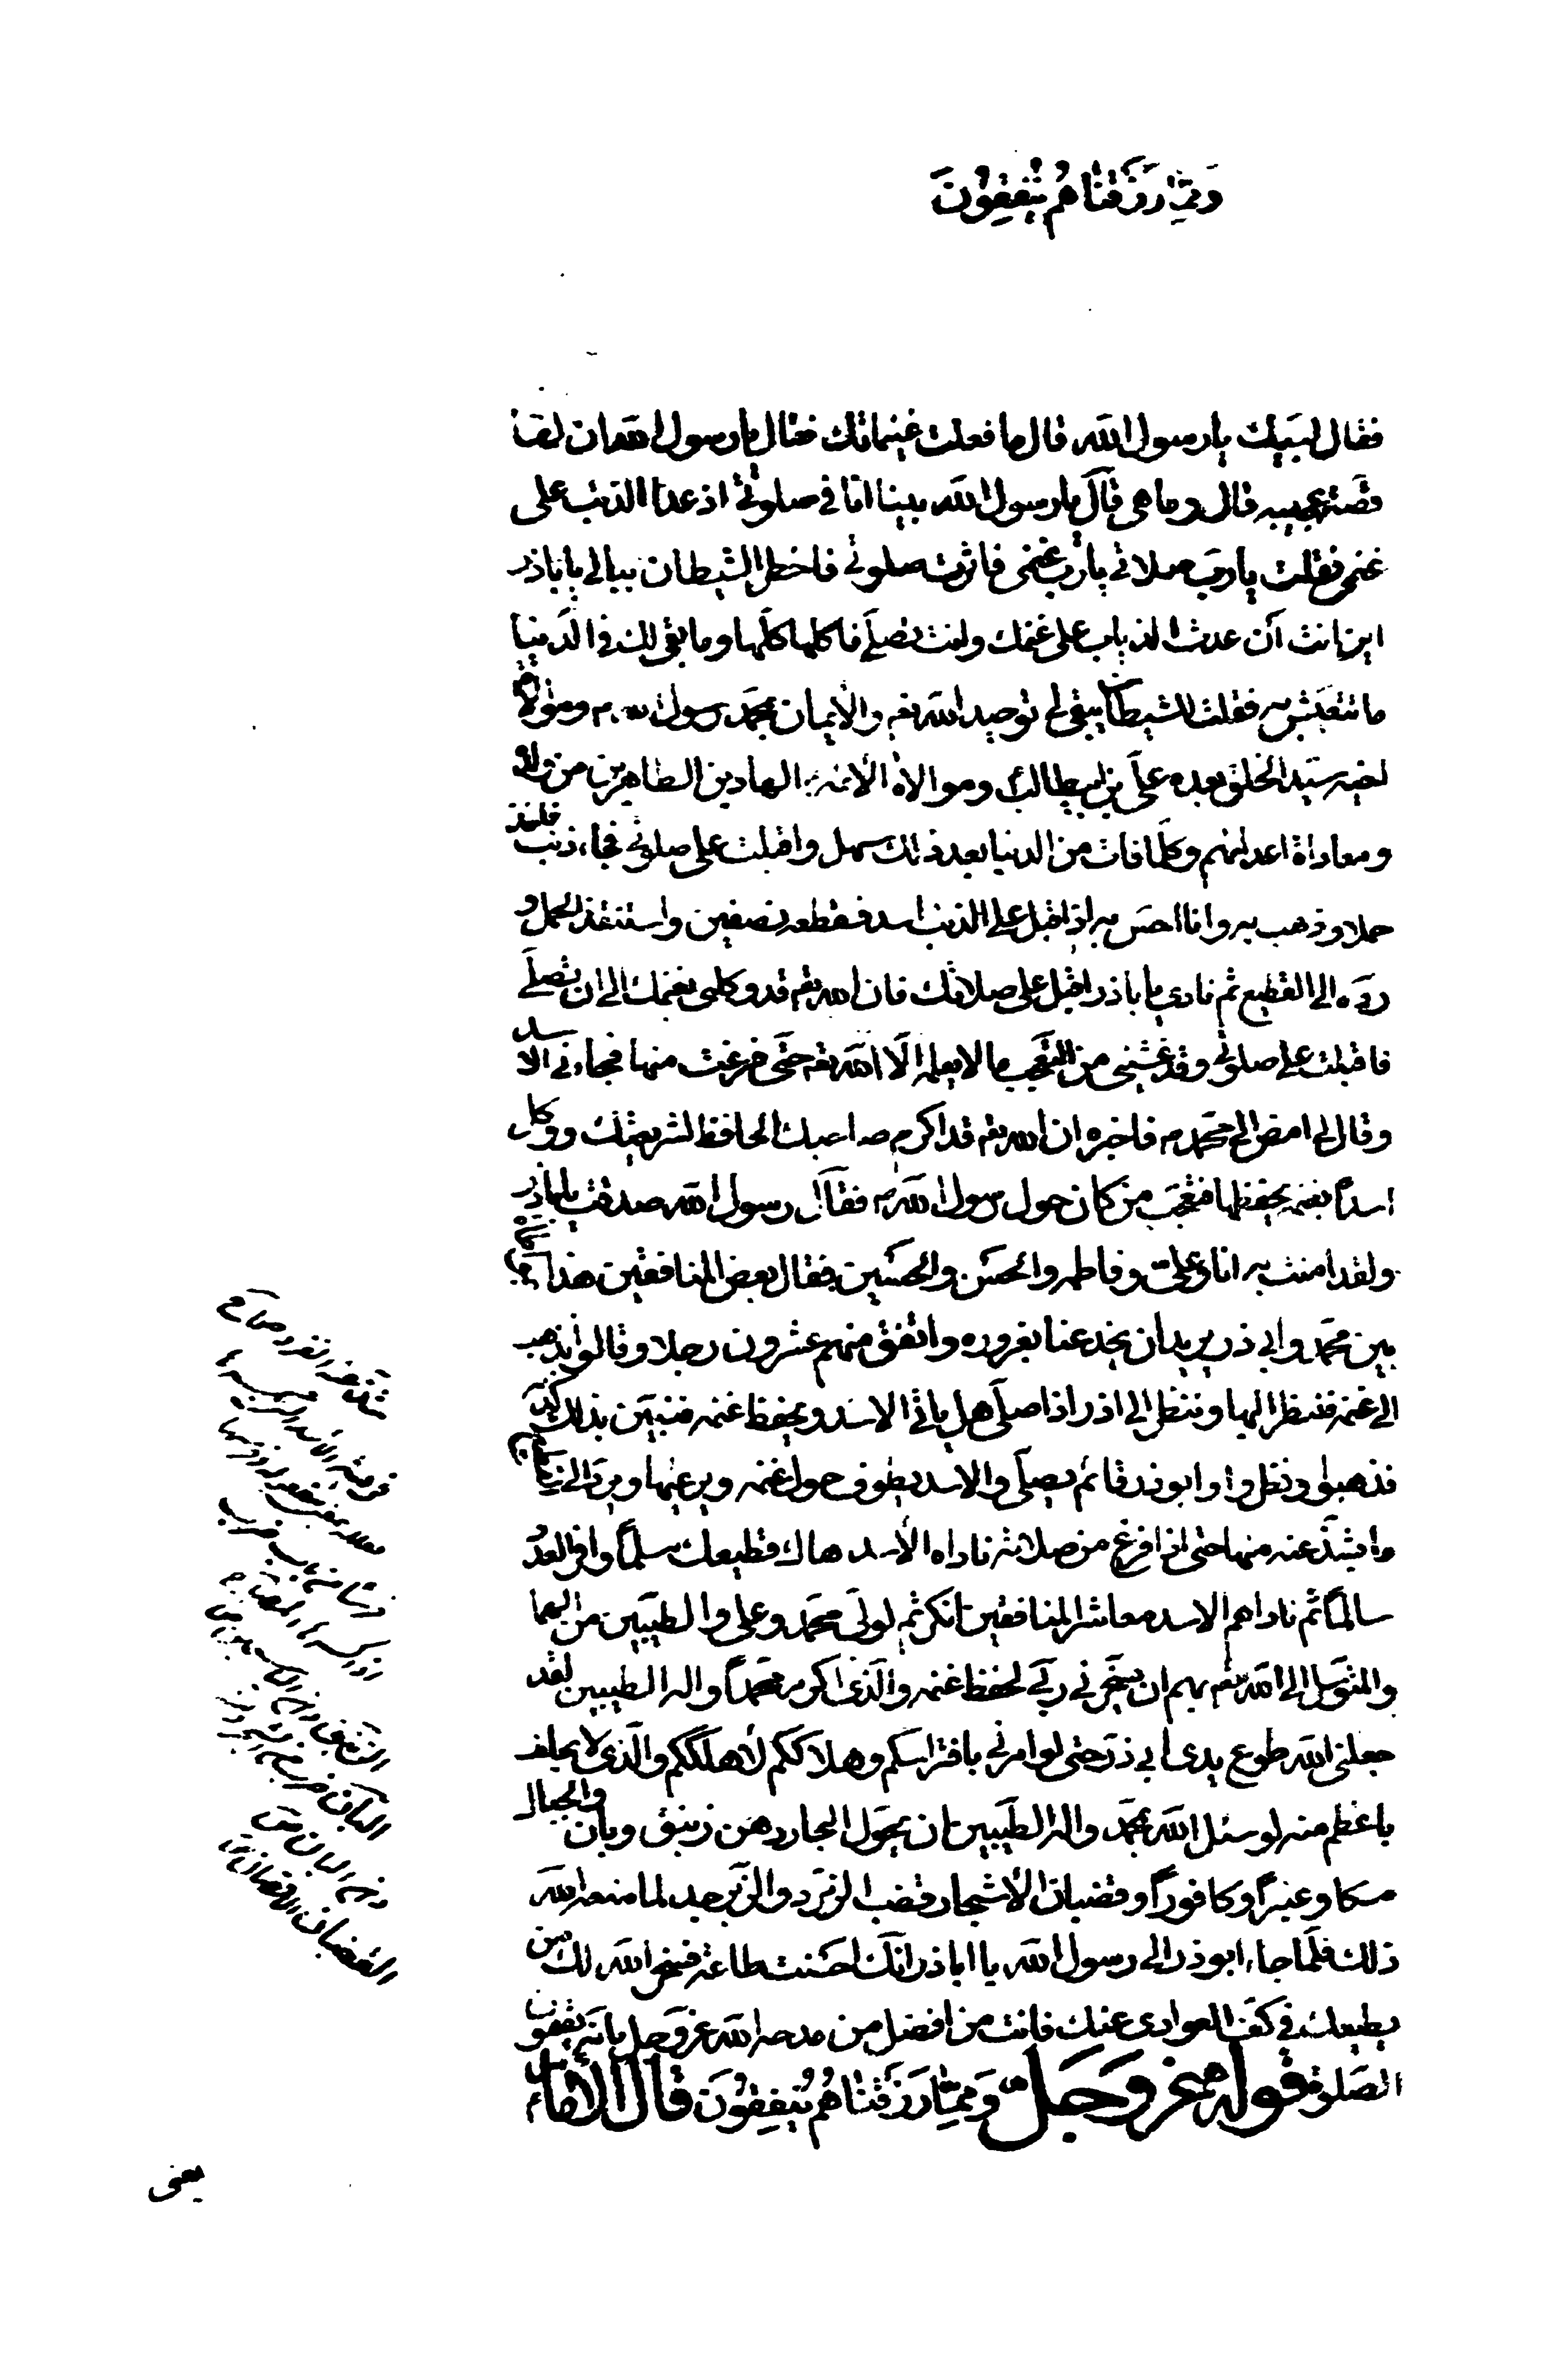 وَمِمَّا رَزَقْنَاهُمْ يُنْفِقُونَ
فقال لبيك يا رسول الله قال ما فعلت غنيماتك فقال يا رسول الله ان لها
قصة عجيبة قال وما هى قال يا رسول الله بينا انا في صلوتي اذ عدا الذئب على
غنمى فقلت يا رب صلاتي يا رب غنمى فاثرت صلوتي فاخطر الشيطان ببالى يا باذر
اين انت ان عدت الذياب على غنمك وانت تصلى فاكلها كلها وما بقى لك في الدنيا
ما تتعيش به فقلت للشيطان يبقى لى توحيد الله تعم والايمان بمحمد رسول الله م وموالاة
اخيه سيد الخلق بعده على بن ابيطالب وموالاة الائمة الهادين الطاهرين من ولده
ومعاداة اعدائهم وكلما فات من الدنيا بعد ذلك سهل واقبلت على صلوتي فجاء ذئب فاخذ
حملا وذهب به وانا احس به اذ اقبل على الذئب اسد فقطعه نصفين واستنقذ الحمل و
رده الى القطيع ثم نادى يا باذر اقبل على صلاتك فان الله تعم قد وكلنى بغنمك الى ان تصلى
فاقبلت على صلوتي وقد غشينى من التعجب ما لا يعلمه الا الله تعم حتى فرغت منها فجاءنى الاسد
وقال لى امض الى محمد م فاخبره ان الله تعم قد اكرم صاحبك الحافظ لشريعتك ووكل
اسدا بغنمه يحفظها فتعجب من كان حول رسول الله م فقال رسول الله صدقت يا باذر
ولقد امنت به انا وعلى وفاطمه والحسن والحسين فقال بعض المنافقين هذا
بين محمد وابي ذر يريد ان يخدعنا بغروره واتفق منهم عشرون رجلا وقالوا نذهب
الى غنمه فننظر اليها وننظر الى اذر اذا صلى هل ياتي الاسد ويحفظ غنمه فنبين بذلك كذبه
فذهبوا ونظروا وابوذر قائم يصلى والاسد يطوف حول غنمه ويرعيها ويرد الى القطيع
ما يشذ عنه منها حتى اذا فرغ من صلاته ناداه الاسد هاك قطيعك مسلما وافر العدد
سالما ثم ناداهم الاسد معاشر المنافقين انكرتم لولى محمد وعلى والطيبين من الهما
والمتوسل الى الله تعم بهم ان يسخرنى ربي لحفظ غنمه والذى اكرم محمدا واله الطيبين لقد
جعلنى الله طوع يدى ابي ذر حتى لو امرني بافتراسكم وهلاككم لاهلككم والذى لا يحلف
باعظم منه لو سئل الله بمحمد واله الطيبين ان يحول البحار دهن زنبق وبان والجبال
مسكا وعنبرا وكافورا وقضبان الاشجار قضب الزمرد والزبرجد لما منعه الله
ذلك فلما جاء ابوذر الى رسول الله يا اباذر انك احسنت طاعة فسخر الله لك من
يطيعك في كف العوادى عنك فانت من افضل من مدحه الله عز وجل بانه يقيمون
الصلوة قوله عز وجل وَمِمَّا رَزَقْنَاهُمْ يُنْفِقُونَ قال الامام
يعنى